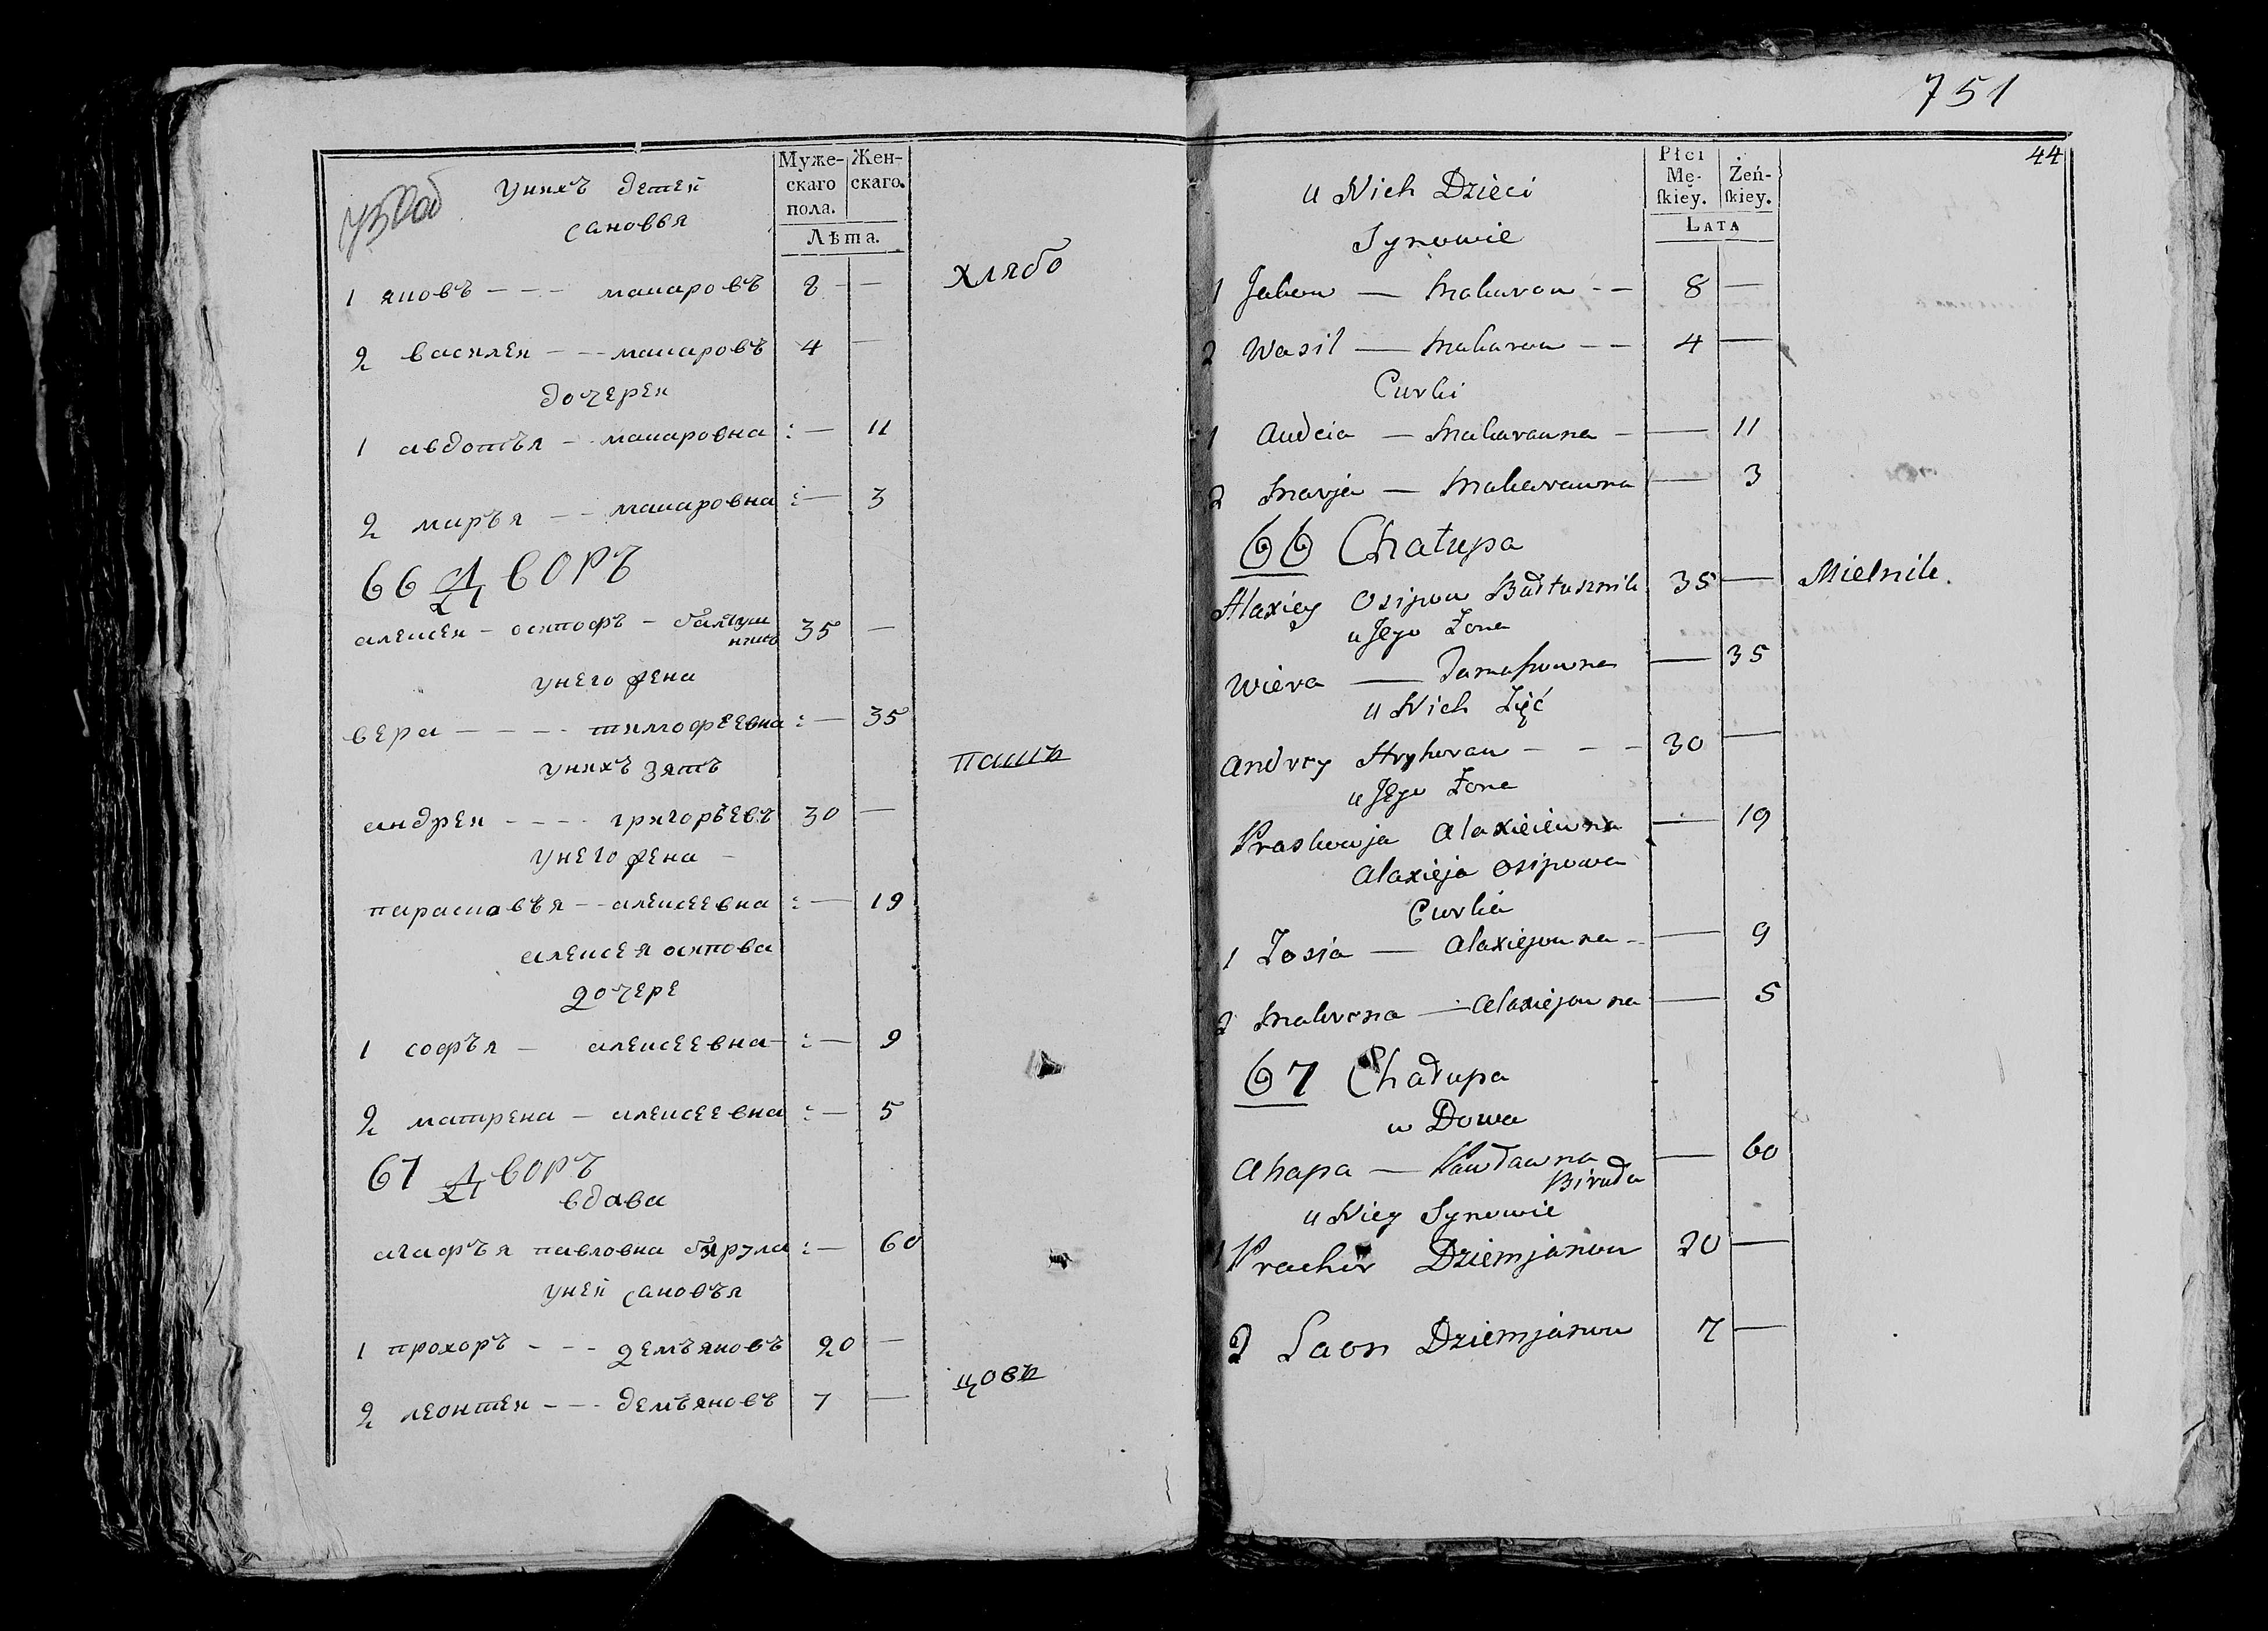 унихъ детей
сановья
Муже-
скаго
пола.
Жен-
скаго.
Лѣта.
1 яковъ - - - макаровъ 8 —
хлябо
2 василеи - - макаровъ 4 —
дочереи
1 авдотья - - макаровна : — 11
2 маръя - - макаровна : — 3
66 дворъ
алексеи - осипофъ - балтуш
никъ 35 —
унего жена
вера - - - - тимофеевна : — 35
унихъ зятъ
пашъ
андреи - - - - григорьевъ 30 —
унего жена
парасковъя - - алексеевна : — 19
алексея осипова
дочере
1 софъя — алексеевна - : — 9
2 матрена — алексеевна : — 5
67 дворъ
вдава
агафъя павловна бирула : — 60
уней сановъя
1 прохоръ - - - демъяновъ 20 —
2 леонтеи - - - демъяновъ 7 —
цовъ
751
44
u Nich Dzieci
Synowie
Płci
Mę-
ſkiey.
Żeń-
ſkiey.
LATA
1 Jakow — Makarow - - 8 —
2 Wasil — Makarow - - 4 —
Curki
1 Audcia — Makarauna - — 11
2 Marja — Makarauna — 3
66 Chałupa
Alaxiey Osipow Bałtusznik 35 — Mielnik.
u Jego Żona
Wiera — Tamaszouna — 35
u Nich Zięć
Andrey Hryhorau - - - 30 —
u Jego Żona
Praskowja Alaxieiewna — 19
Alaxieja Osipowa
Curkia
1 Zosia — Alaxiejouna - — 9
2 Makrena — Alaxiejouna — 5
67 Chałupa
w Dowa
Ahapa — Pauławna
Biruła — 60
u Niey Synowie
1 Prachor Dziemjanow 20 —
2 Laon Dziemjanow 7 —